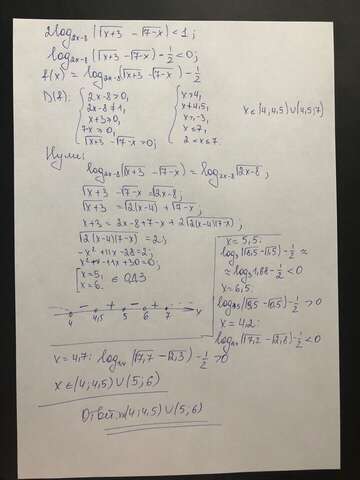 2log₂ₓ₋₈(√x+3 − √7−x) < 1;
log₂ₓ₋₈(√x+3 − √7−x) − 1/2 < 0;
f(x) = log₂ₓ₋₈(√x+3 − √7−x) − 1/2
D(f): { 2x−8>0, { x>4,
2x−8≠1, x≠4,5,
x+3≥0, x≥−3,
7−x≥0, x≤7,
√x+3 − √7−x > 0; 2<x≤7.
x∈(4;4,5)∪(4,5;7)
Нули:
log₂ₓ₋₈(√x+3 − √7−x) = log₂ₓ₋₈√2x−8;
√x+3 − √7−x = √2x−8;
√x+3 = √2(x−4) + √7−x;
x+3 = 2x−8+7−x + 2√2(x−4)(7−x);
√2(x−4)(7−x) = 2;
−x²+11x−28=2;
x²−11x+30=0;
[ x=5, ∈ ОДЗ
x=6.
− + − +
4 4,5 5 6 7 x
x=5,5:
log₃(√8,5−√1,5) − 1/2 ≈
≈ log₃1,88 − 1/2 < 0
x=6,5:
log₅(√9,5−√0,5) − 1/2 > 0
x=4,2:
(√7,2 − √2,8) − 1/2 < 0
x=4,7: (√7,7 − √2,3) − 1/2 > 0
x∈(4;4,5)∪(5;6)
Ответ: (4;4,5)∪(5;6)